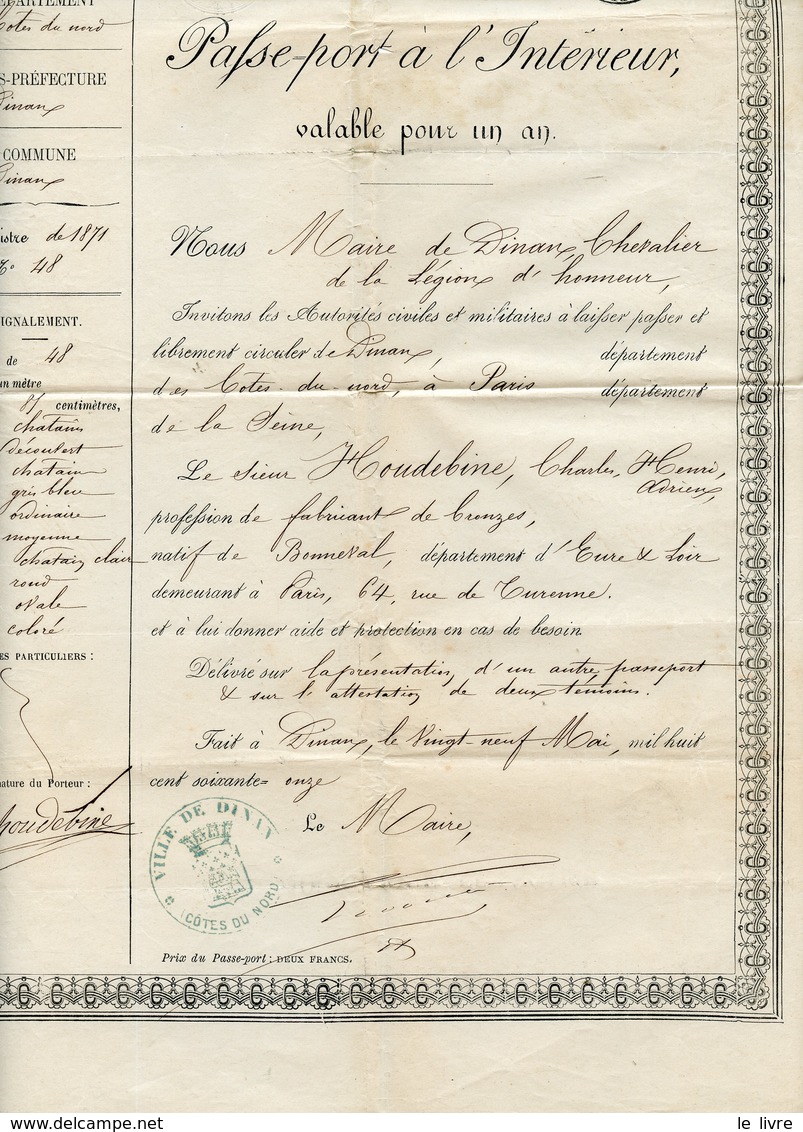 ÉPARTEMENT
Cotes du nord
S-PRÉFECTURE
Dinan
COMMUNE
Dinan
istre de 1871
N° 48
IGNALEMENT.
de 48
un mètre
centimètres,
chatains
découvert
chatain
gris bleu
ordinaire
moyenne
chatain clair
rond
ovale
coloré
ES PARTICULIERS :
nature du Porteur :
houdebine
Passe-port à l'Intérieur,
valable pour un an.
Nous Maire de Dinan, Chevalier
de la Légion d'honneur,
Invitons les Autorités civiles et militaires à laisser passer et
librement circuler de Dinan, département
des Cotes-du-nord, à Paris département
de la Seine,
Le sieur Houdebine, Charles, Henri,
Adrien,
profession de fabricant de bronzes,
natif de Bonneval, département d'Eure & Loir
demeurant à Paris, 64, rue de Turenne.
et à lui donner aide et protection en cas de besoin
Délivré sur la présentation d'un autre passeport
& sur l'attestation de deux témoins.
Fait à Dinan, le vingt-neuf Mai, mil huit
cent soixante-onze
Le Maire,
VILLE DE DINAN
(CÔTES DU NORD)
Prix du Passe-port : DEUX FRANCS.
www.delcampe.net
le livre